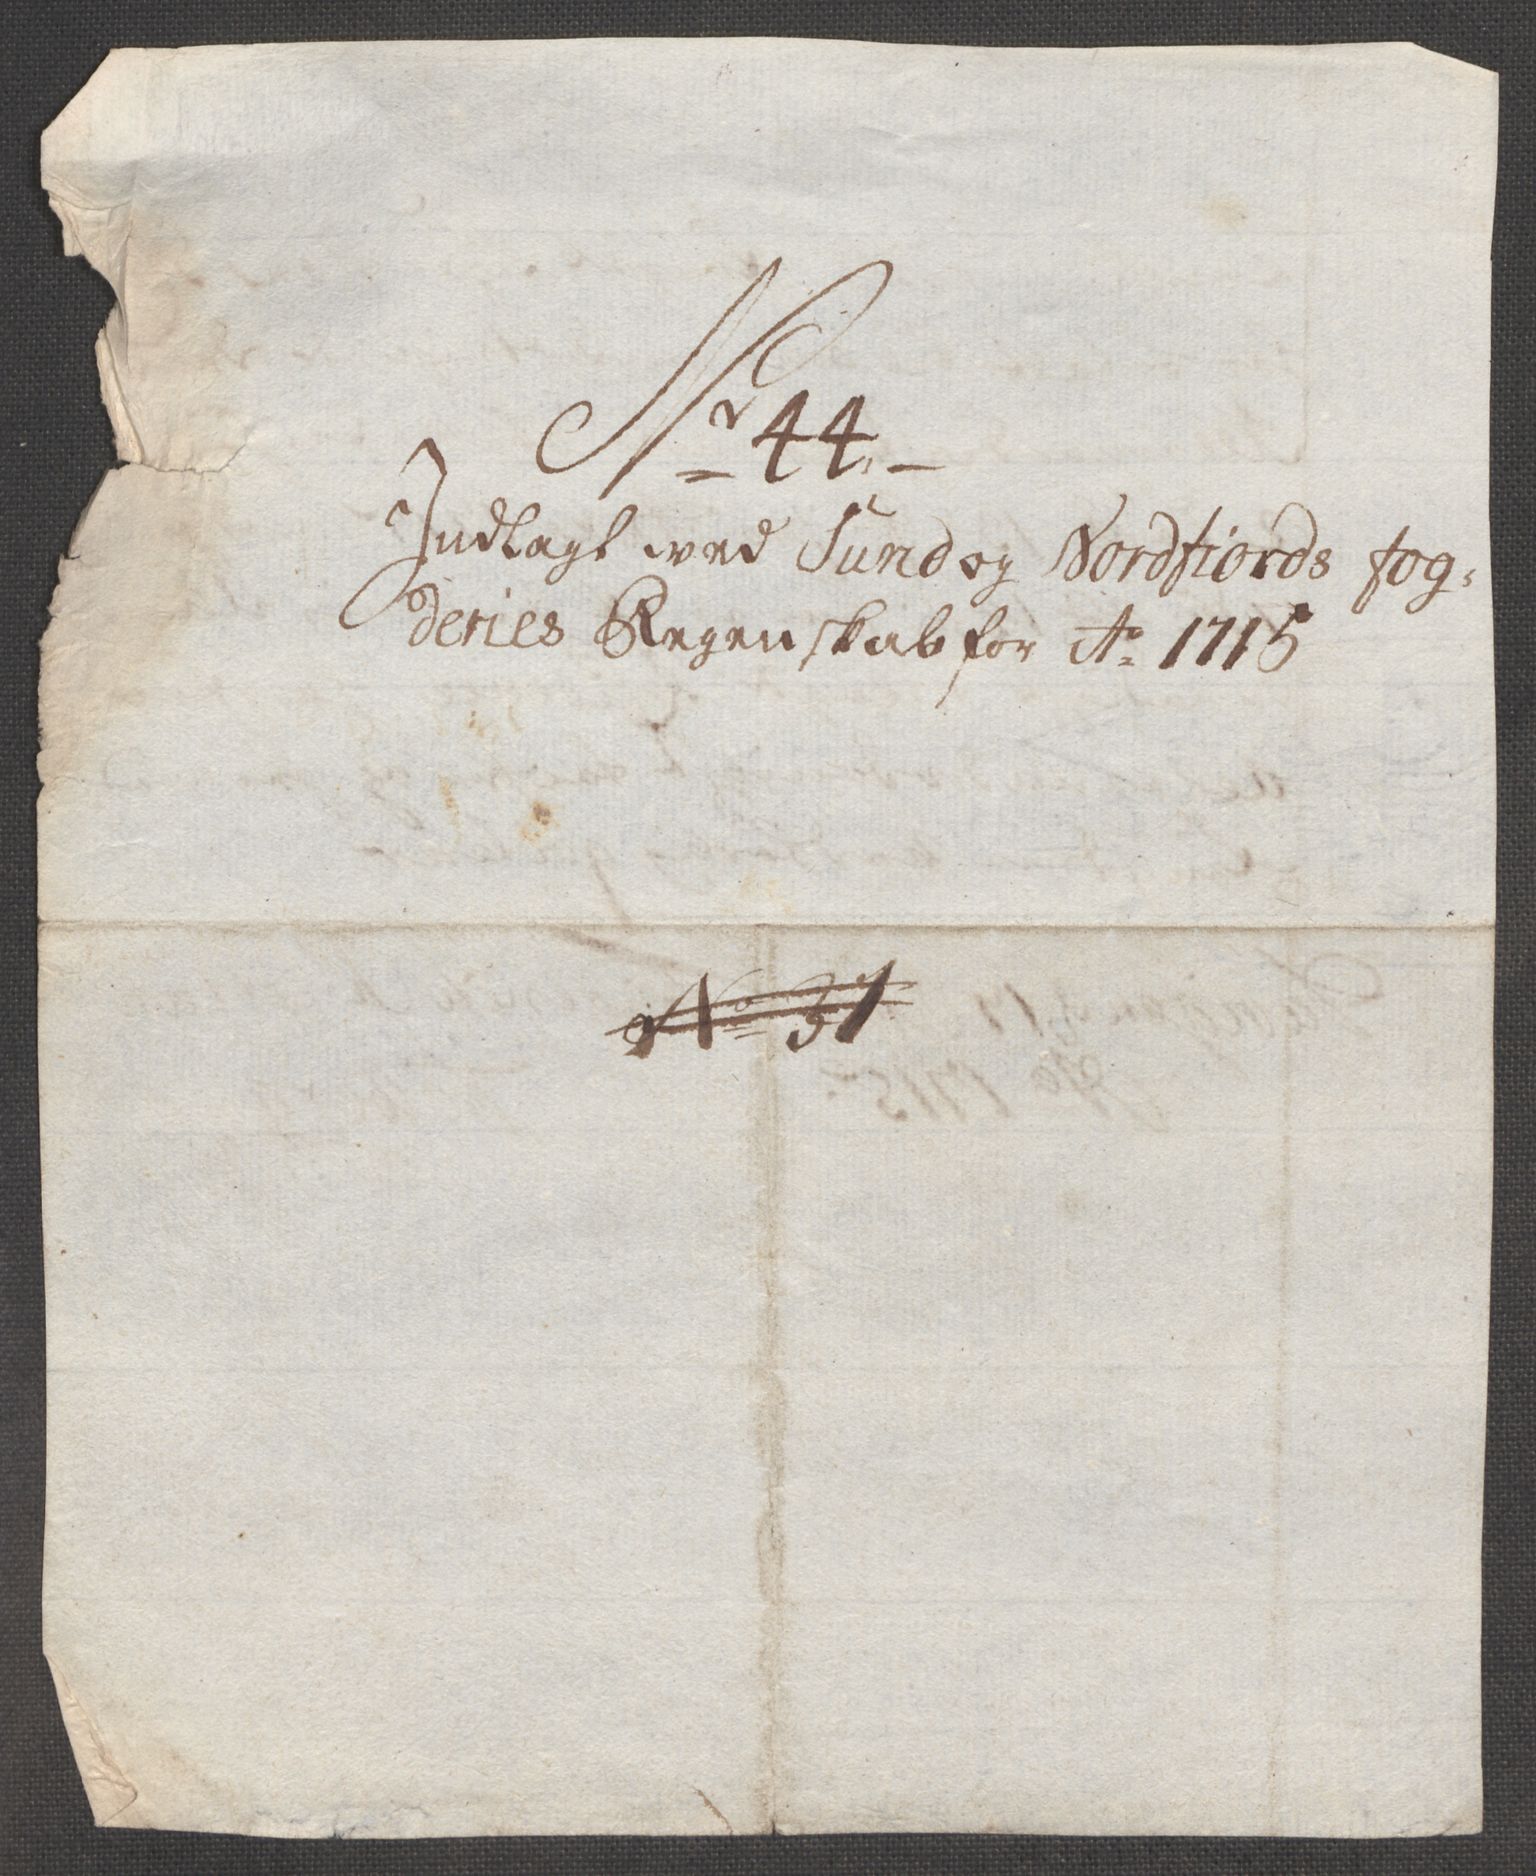 Nr 44.
Indlagt ved Sund og Nordfiords fog-
deries Regenskab for Ao 1715
No 31